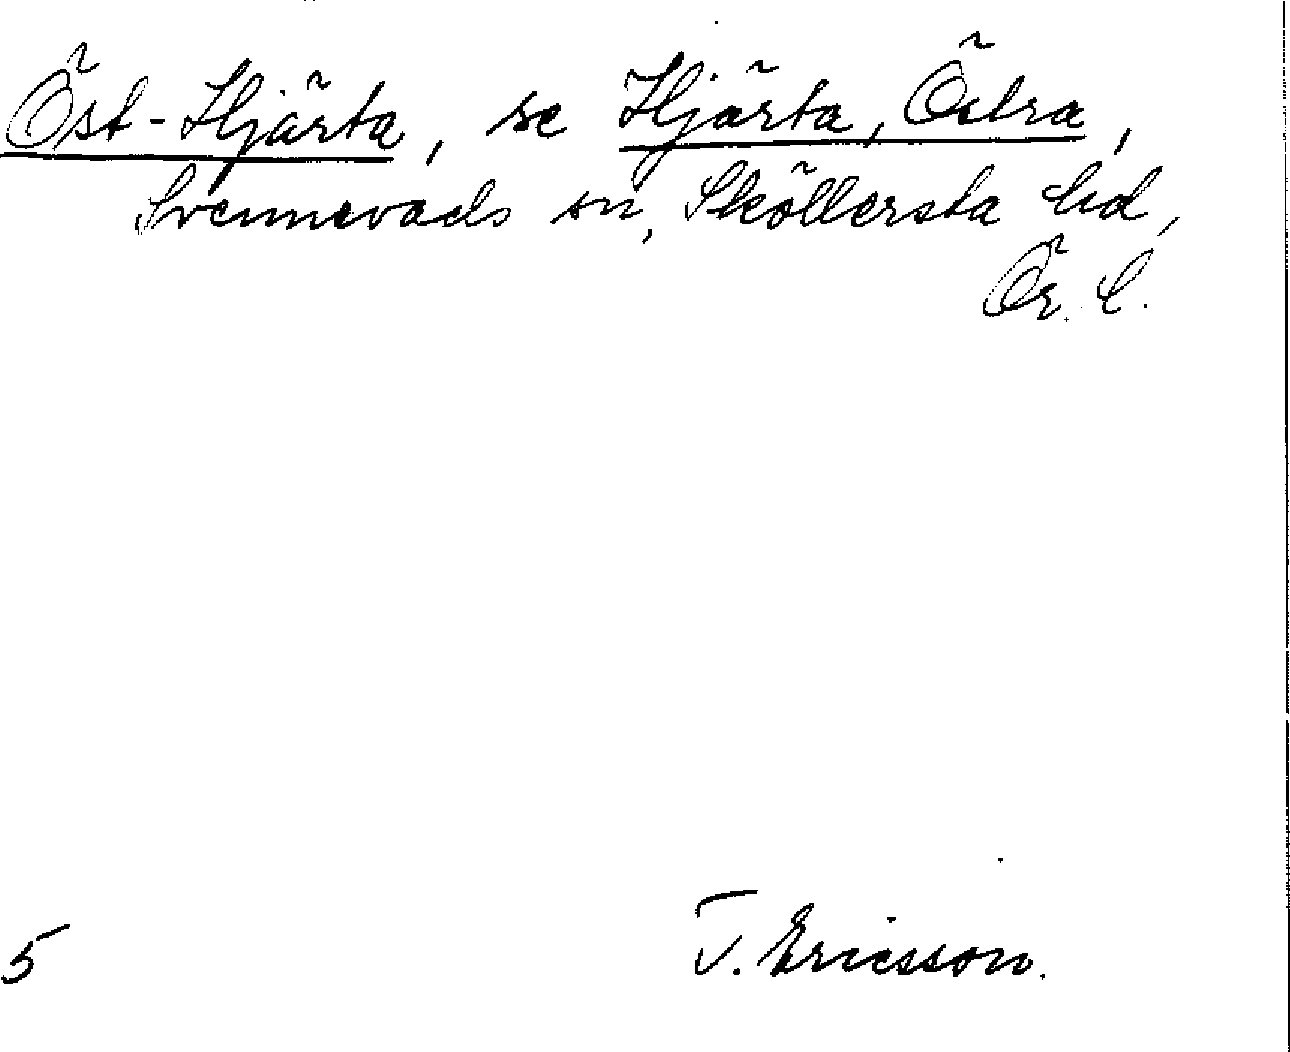 Öst-Hjärta, se Hjärta, Östra,
Svennevads sn, Sköllersta hd,
Ör. l.
5
T. Ericsson.